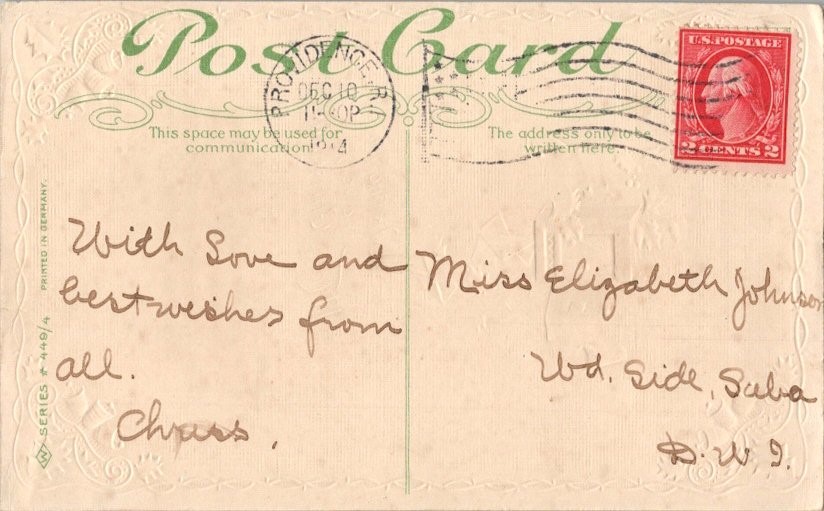 Post Card
PROVIDENCE, R.I.
DEC 10
1914
U.S. POSTAGE
2 CENTS 2
This space may be used for
communication.
The address only to be
written here.
PRINTED IN GERMANY.
W SERIES # 449/4
With Love and
best wishes from
all.
Miss Elizabeth Johnson
Wd. Side, Saba
D. W. I.